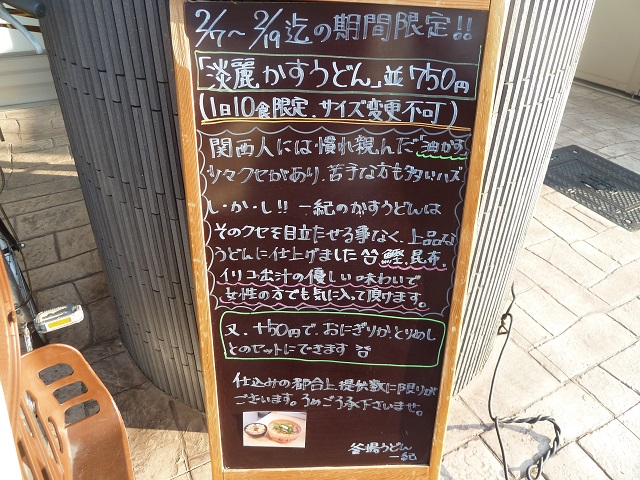 2/7〜2/19迄の期間限定!!
「淡麗かすうどん」並750円
(1日10食限定、サイズ変更不可)
関西人には慣れ親んだ「油かす」
少々クセがあり、苦手な方も多いハズ
し・か・し!! 一紀のかすうどんは
そのクセを目立たせる事なく、上品な
うどんに仕上げました 鰹、昆布、
イリコ出汁の優しい味わいで
女性の方でも気に入って頂けます。
又、+50円で、おにぎりか、とりめし
とのセットにできます
仕込みの都合上、提供数に限りが
ございます。予めご了承下さいませ。
釜揚うどん
一紀